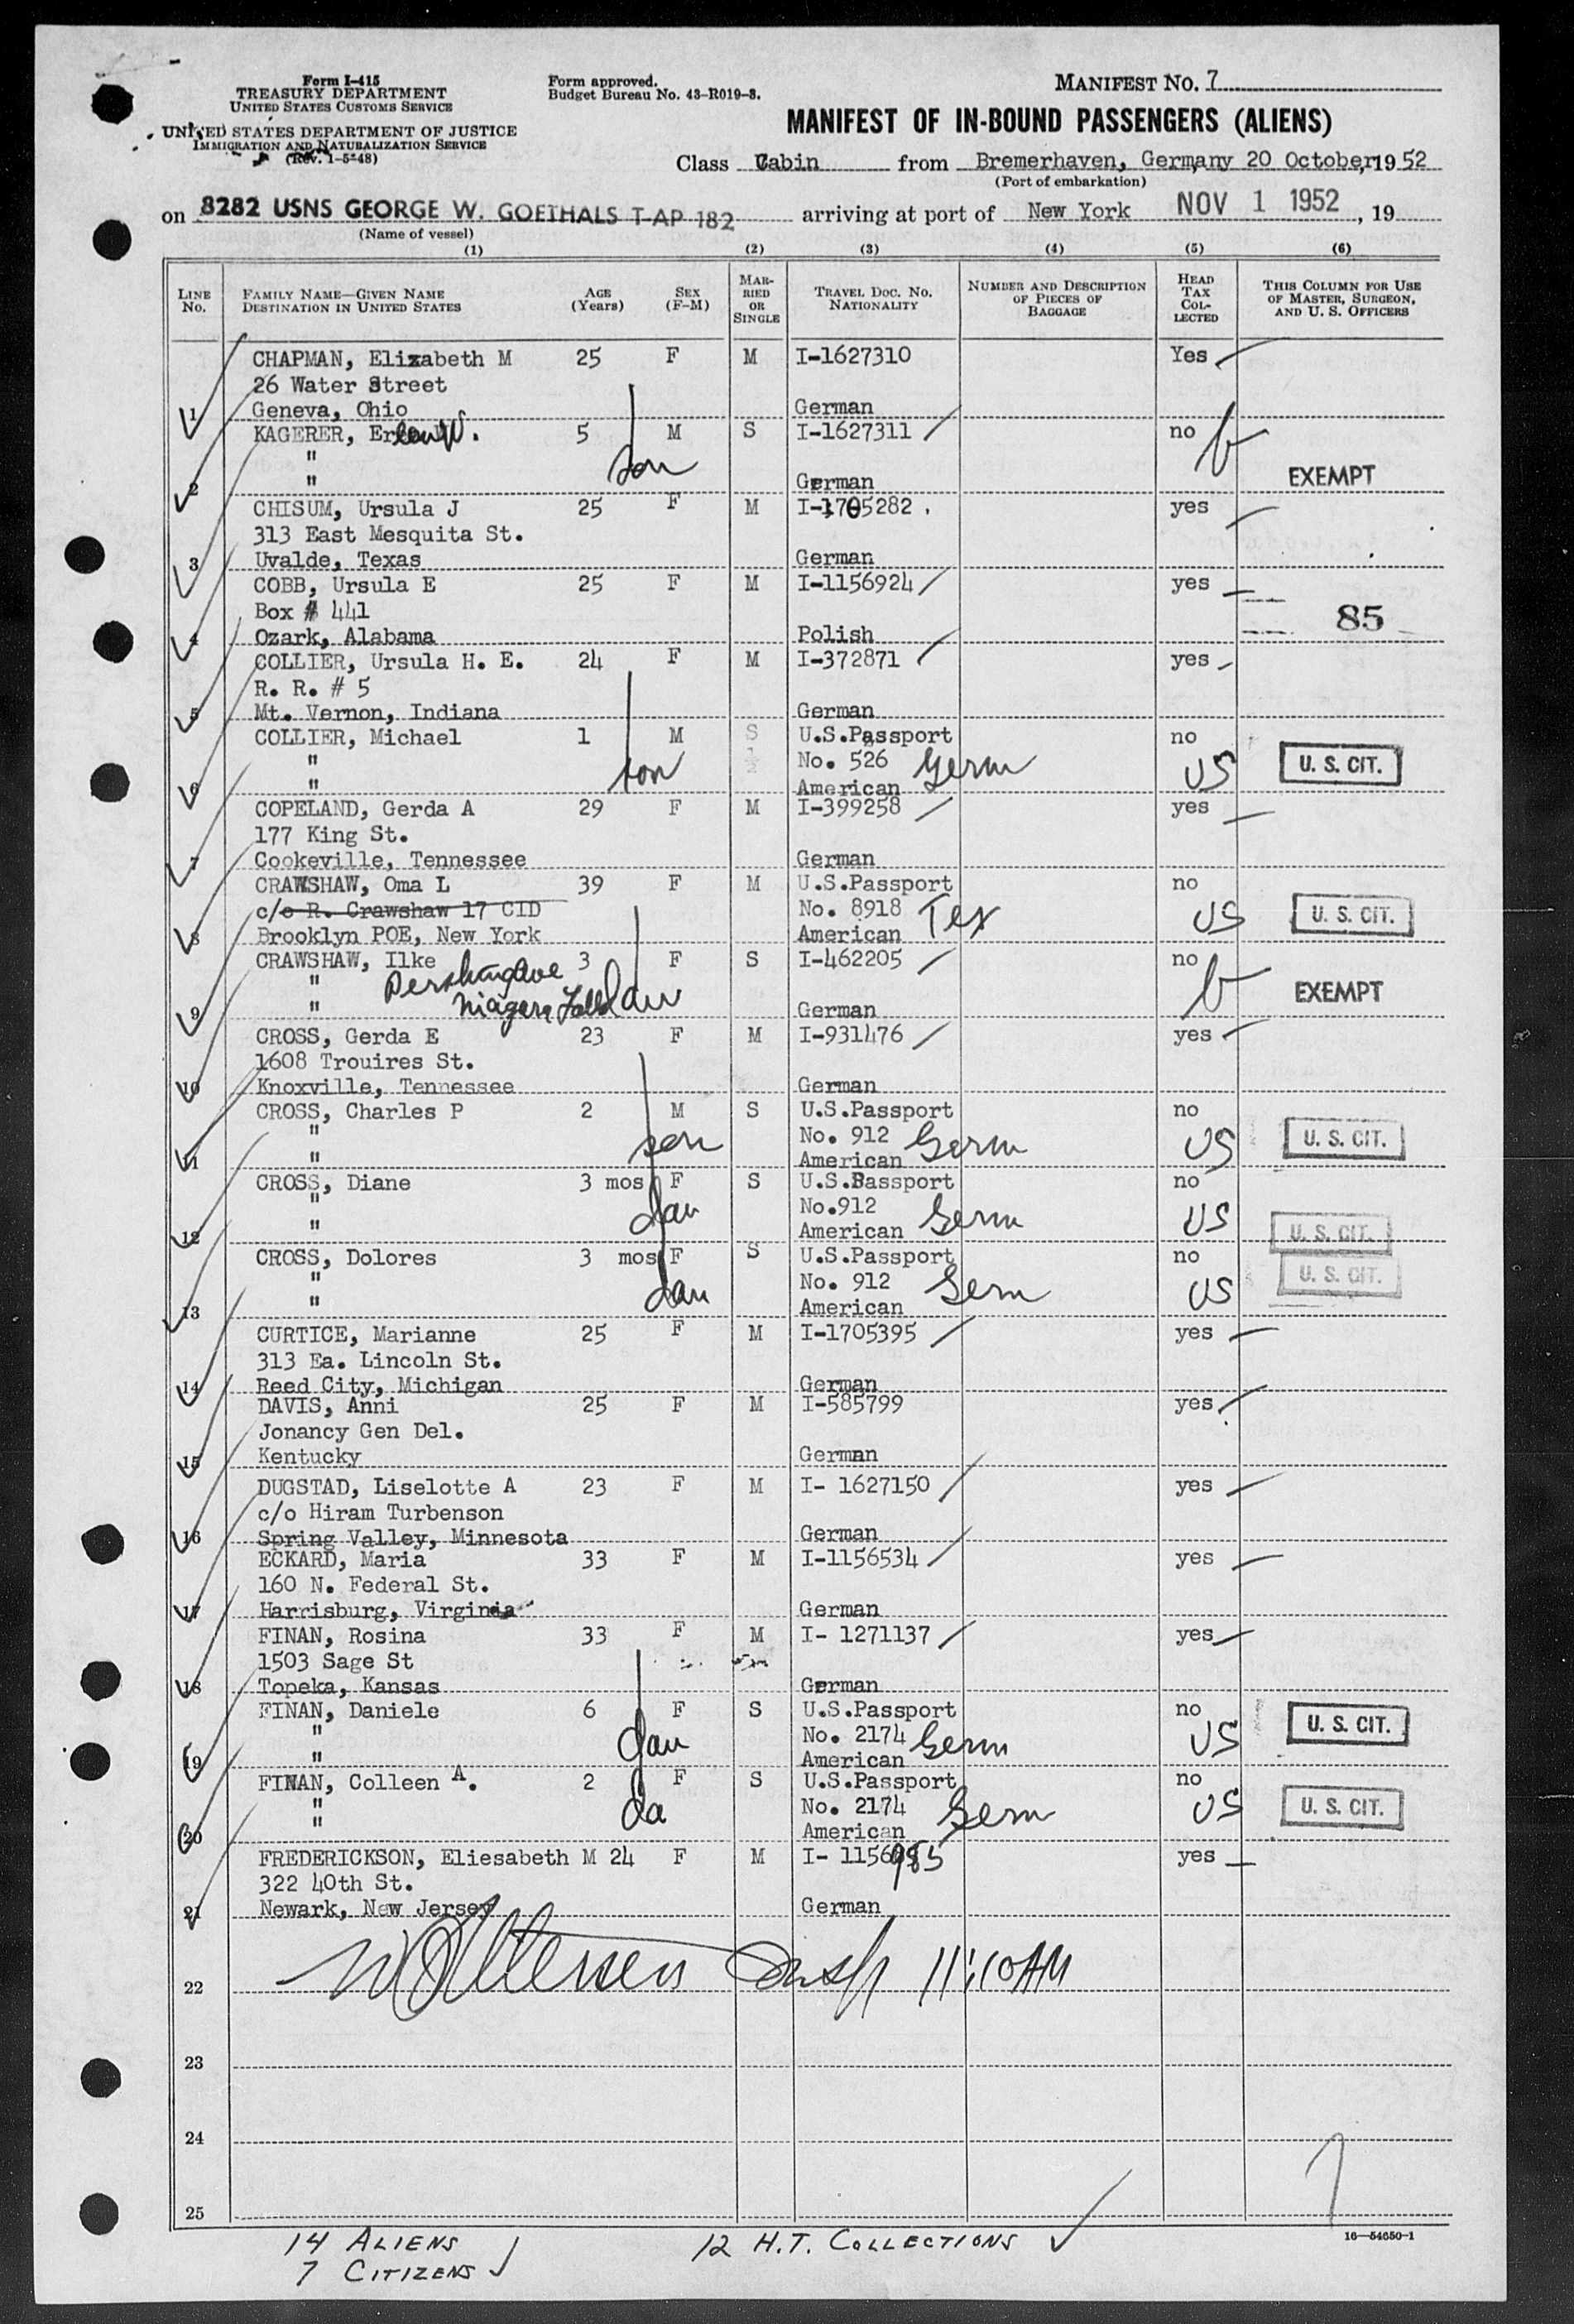 Form I-415
TREASURY DEPARTMENT
UNITED STATES CUSTOMS SERVICE
UNITED STATES DEPARTMENT OF JUSTICE
IMMIGRATION AND NATURALIZATION SERVICE
(Rev. 1-5-48)
Form approved.
Budget Bureau No. 43-R019-3.
MANIFEST NO. 7
MANIFEST OF IN-BOUND PASSENGERS (ALIENS)
Class Cabin from Bremerhaven, Germany 20 October, 1952
(Port of embarkation)
on 8282 USNS GEORGE W. GOETHALS T-AP 182 arriving at port of New York NOV 1 1952, 19
(Name of vessel)
(1) (2) (3) (4) (5) (6)
LINE NO. FAMILY NAME—GIVEN NAME DESTINATION IN UNITED STATES AGE (Years) SEX (F-M) MARRIED OR SINGLE TRAVEL DOC. NO. NATIONALITY NUMBER AND DESCRIPTION OF PIECES OF BAGGAGE HEAD TAX COLLECTED THIS COLUMN FOR USE OF MASTER, SURGEON, AND U. S. OFFICERS
CHAPMAN, Elizabeth M 25 F M I-1627310 Yes
26 Water Street
1 Geneva, Ohio German
KAGERER, Erlen W. 5 M S I-1627311 no
" son
2 " German EXEMPT
CHISUM, Ursula J 25 F M I-1705282 . yes
313 East Mesquita St.
3 Uvalde, Texas German
COBB, Ursula E 25 F M I-1156924 yes
Box # 441 85
4 Ozark, Alabama Polish
COLLIER, Ursula H. E. 24 F M I-372871 yes
R. R. # 5
5 Mt. Vernon, Indiana German
COLLIER, Michael 1 M S U.S.Passport no
" son No. 526 Germ US U. S. CIT.
6 " American
COPELAND, Gerda A 29 F M I-399258 yes
177 King St.
7 Cookeville, Tennessee German
CRAWSHAW, Oma L 39 F M U.S.Passport no
c/o R. Crawshaw 17 CID No. 8918 Tex US U. S. CIT.
8 Brooklyn POE, New York American
CRAWSHAW, Ilke 3 F S I-462205 no
" Pershing Ave dau EXEMPT
9 " Niagara Falls German
CROSS, Gerda E 23 F M I-931476 yes
1608 Trouires St.
10 Knoxville, Tennessee German
CROSS, Charles P 2 M S U.S.Passport no
" son No. 912 Germ US U. S. CIT.
11 " American
CROSS, Diane 3 mos F S U.S.Bassport no
" dau No.912 Germ US
12 " American U. S. CIT.
CROSS, Dolores 3 mos F S U.S.Passport no
" dau No. 912 Germ US U. S. CIT.
13 " American
CURTICE, Marianne 25 F M I-1705395 yes
313 Ea. Lincoln St.
14 Reed City, Michigan German
DAVIS, Anni 25 F M I-585799 yes
Jonancy Gen Del.
15 Kentucky German
DUGSTAD, Liselotte A 23 F M I- 1627150 yes
c/o Hiram Turbenson
16 Spring Valley, Minnesota German
ECKARD, Maria 33 F M I-1156534 yes
160 N. Federal St.
17 Harrisburg, Virginia German
FINAN, Rosina 33 F M I- 1271137 yes
1503 Sage St
18 Topeka, Kansas German
FINAN, Daniele 6 F S U.S.Passport no
" dau No. 2174 Germ US U. S. CIT.
19 " American
FINAN, Colleen A. 2 F S U.S.Passport no
" da No. 2174 Germ US U. S. CIT.
20 " American
FREDERICKSON, Eliesabeth M 24 F M I- 1156985 yes
322 40th St.
21 Newark, New Jersey German
22 11:10AM
23
24
25
14 ALIENS 12 H.T. COLLECTIONS
7 CITIZENS
16—54650-1